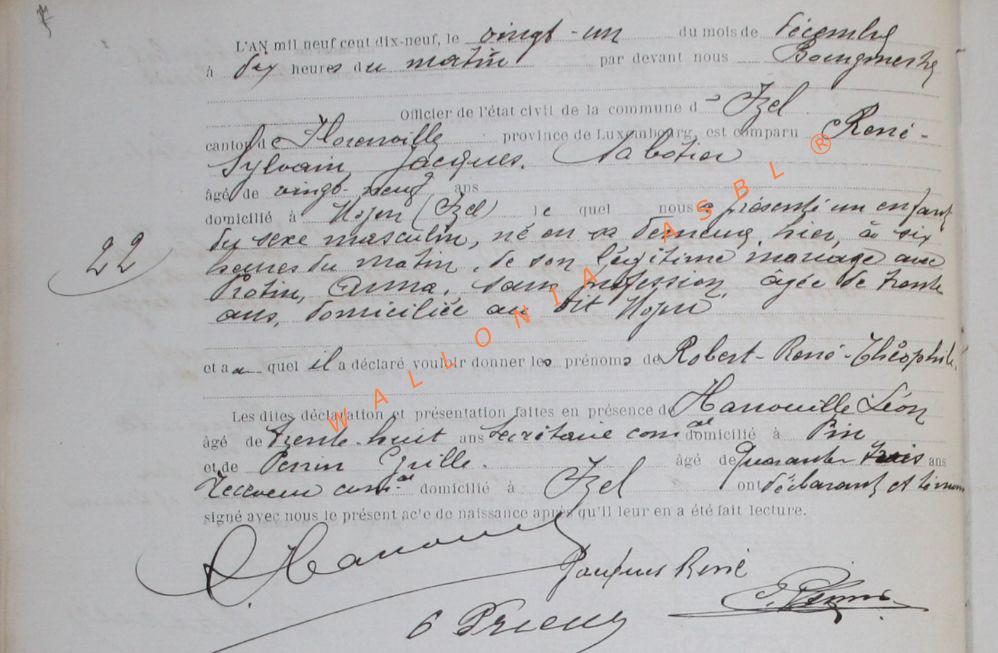 L'AN mil neuf cent dix-neuf, le vingt-un du mois de Décembre
à dix heures du matin par devant nous Bourgmestre
Officier de l'état civil de la commune d'Izel
canton de Florenville province de Luxembourg, est comparu René-
Sylvain Jacques, Sabotier
âgé de vingt-neuf ans
domicilié à Moyen (Izel) le quel nous a présenté un enfant
du sexe masculin, né en sa demeure, hier, à six
heures du matin, de son légitime mariage avec
Protin, Anna, sans profession, âgée de trente
ans, domiciliée au dit Moyen
22
et a a quel il a déclaré vouloir donner les prénoms de Robert-René-Théophile.
Les dites déclaration et présentation faites en présence de Hanouille Léon
âgé de trente-huit ans Secrétaire comal domicilié à Pin
et de Perrin âgé de quarante trois ans
Receveur comal domicilié à Izel ont déclarant et témoins
signé avec nous le présent acte de naissance après qu'il leur en a été fait lecture.
Jacques René
WALLONIA ASBL ®